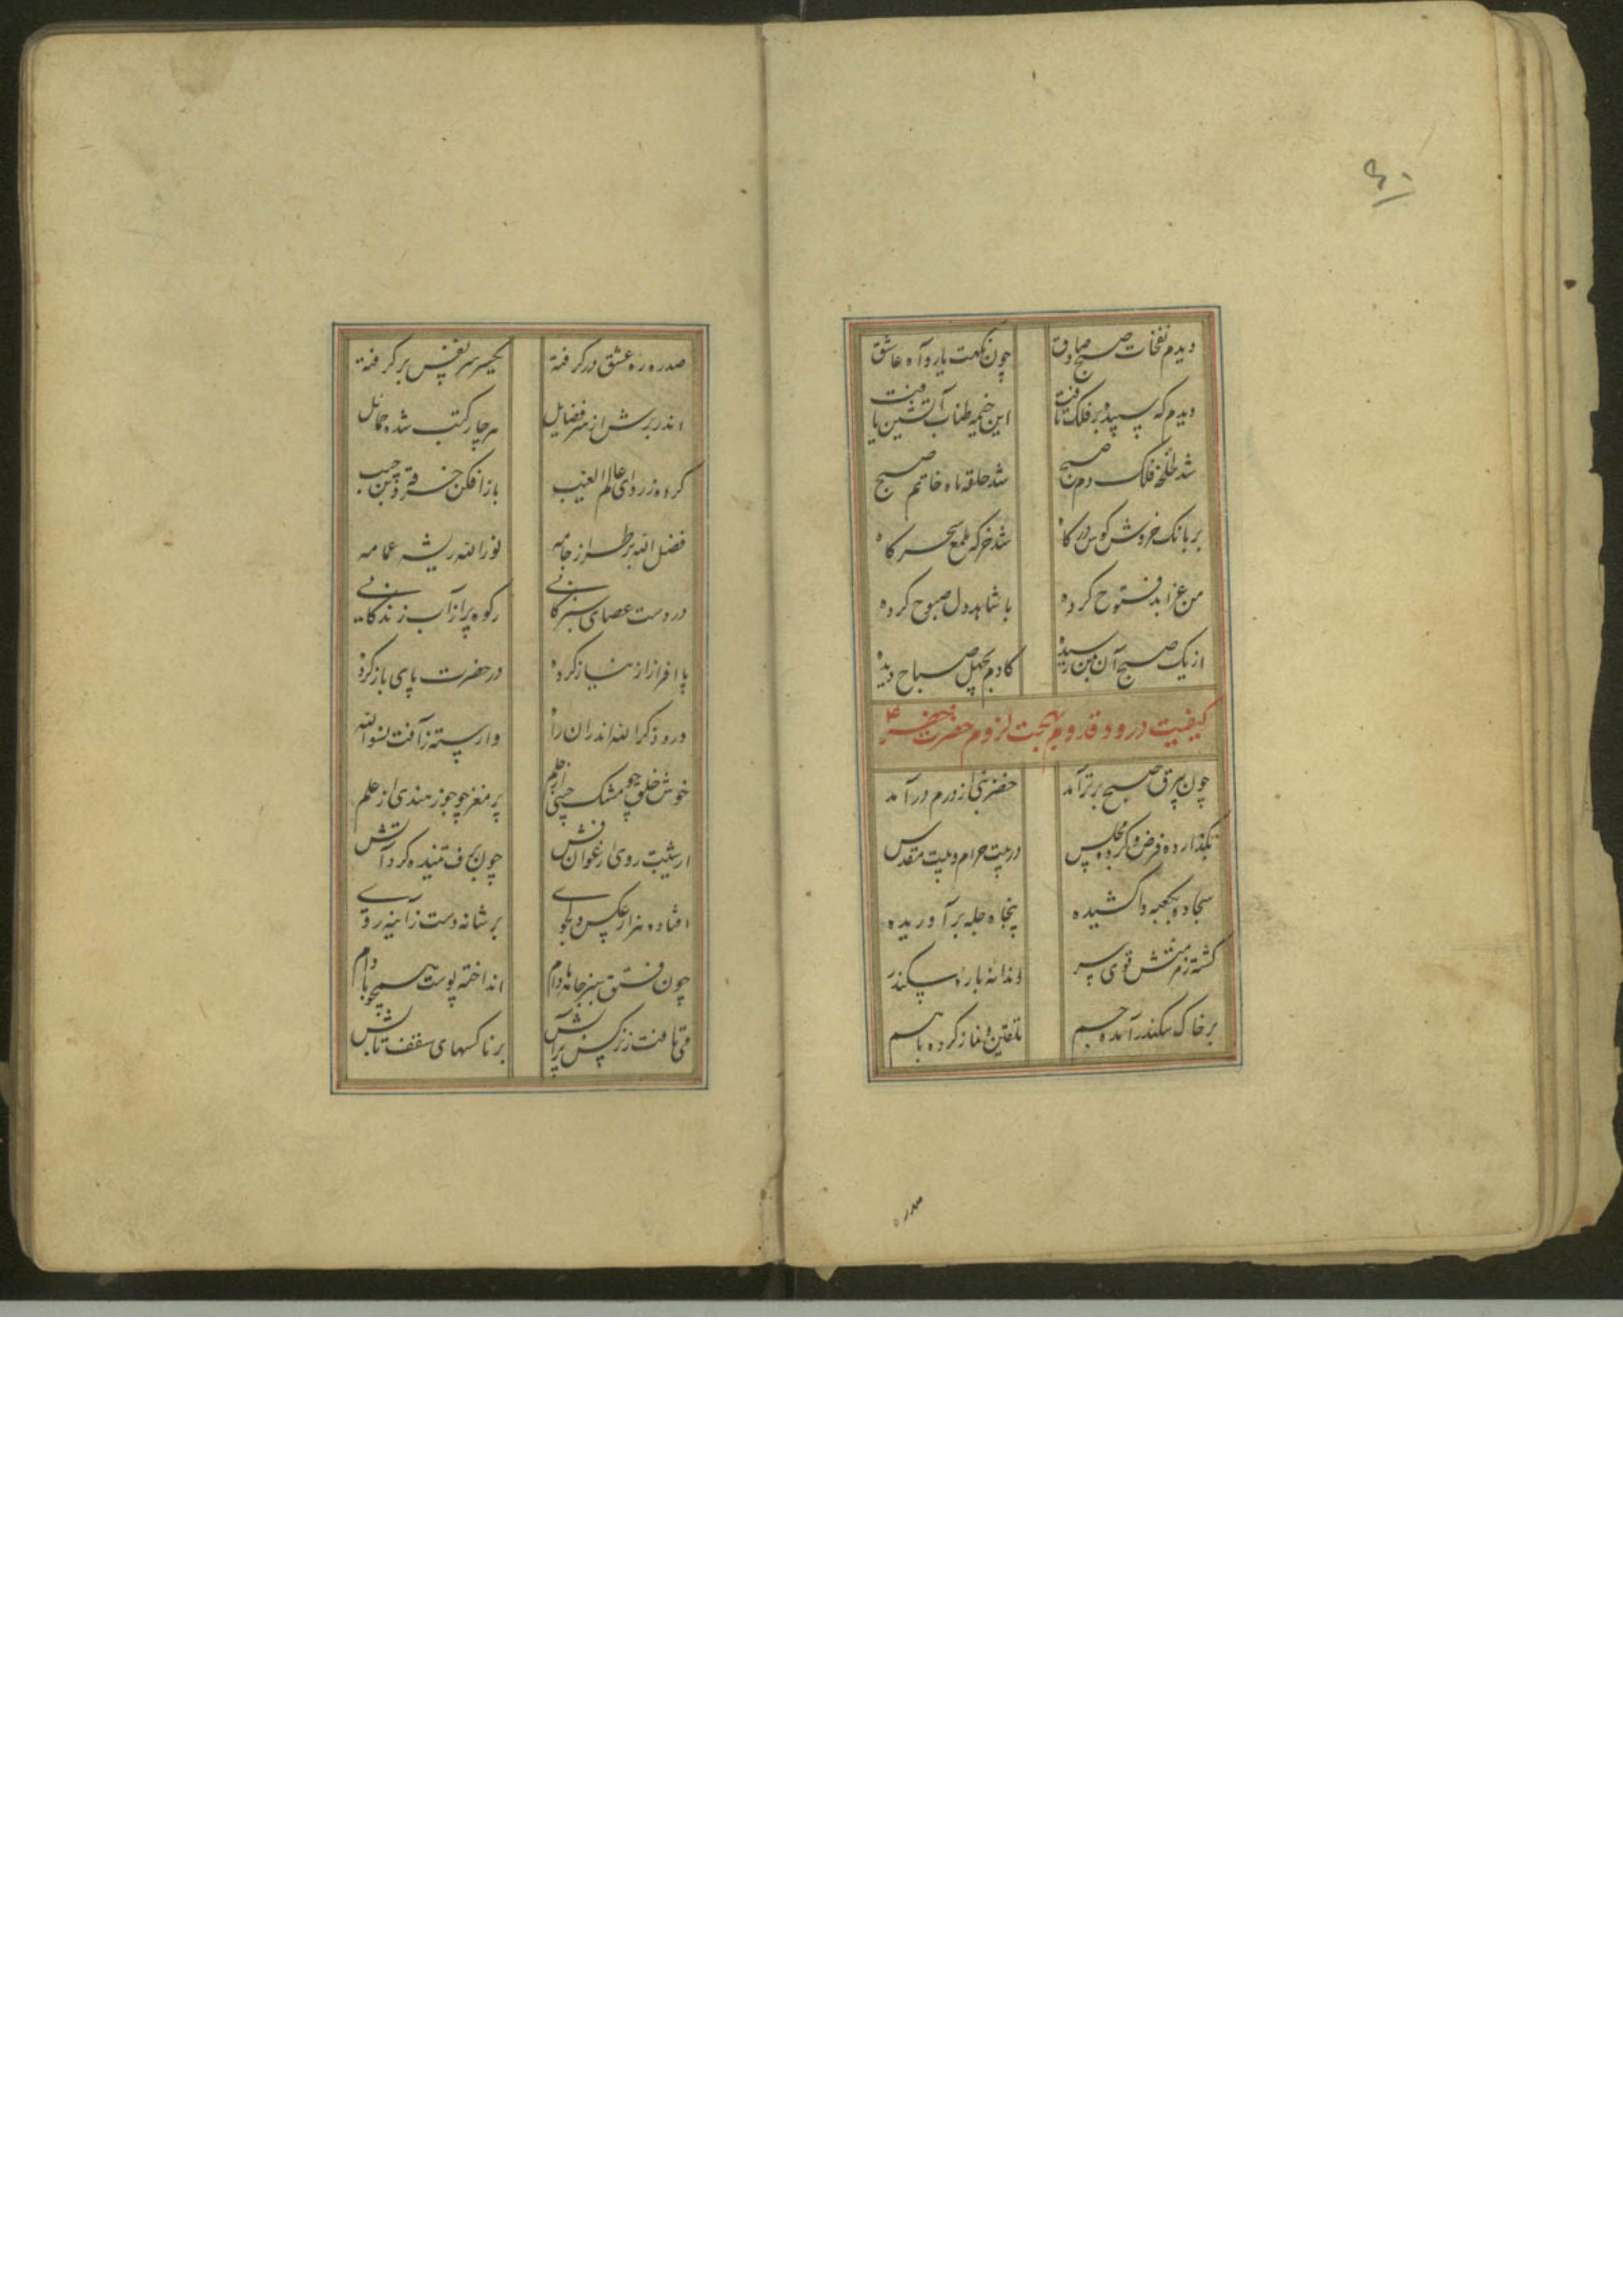 ۶۰
دیدم نفحات صبح صادق چون نکهت یار و آه عاشق
دیدم که سپیده بر فلک تافت این خیمه طناب آتشین یافت
شد طلخهٔ فلک دم صبح شد حلقه ماه خاتم صبح
بر بانک خروش کوس درگاه شد خرکه ملمع سحرگاه
من عزابد فتوح کرده با شاهد دل صبوح کرده
از یک صبح آن بمن رسیده کادم بچهل صباح دیده
کیفیت درود قدوم بهجت لزوم حضرت خضر ع
چون بیرق صبح برتر آمد خضر نبی از درم درآمد
بگذارده فرض و کرده مجلس در بیت حرام و بیت مقدس
سجاده بکعبه واکشیده پنجاه چله برآوریده
گشته ز منش قوی سر دندانه باره سکندر
بر خاک سکندر آمده جسم تلقین و نماز کرده باهم
صدره
صدره ره عشق درگرفته یکسر سر نفس برگرفته
اندر برش از سر فضایل هر چار کتب شده حمایل
کرده ز ردای عالم الغیب بازافکن خرقه و بن جیب
فضل الله بر طراز جامه نورالله ریشه عمامه
در دست عصای سبزکانی رکوه پر از آب زندگانی
پا افراز از نیاز کرده در حضرت پای باز کرده
درد ذکر الله اندران راه وارسته ز آفت نسوا الله
خوش خلق چو مشک چینی از حلم پر مغز چو جوز هندی از علم
از شیبت روی ارغوان فش چون برف تنیده گرد آتش
افتاده هزار عکس دلجوی بر شانه دست ز آینه روی
چون فستق سبز جامه مادام انداخته پوست همچو بادام
می تافت ز نرگس پر آبش بر ناکسهای سقف تابش